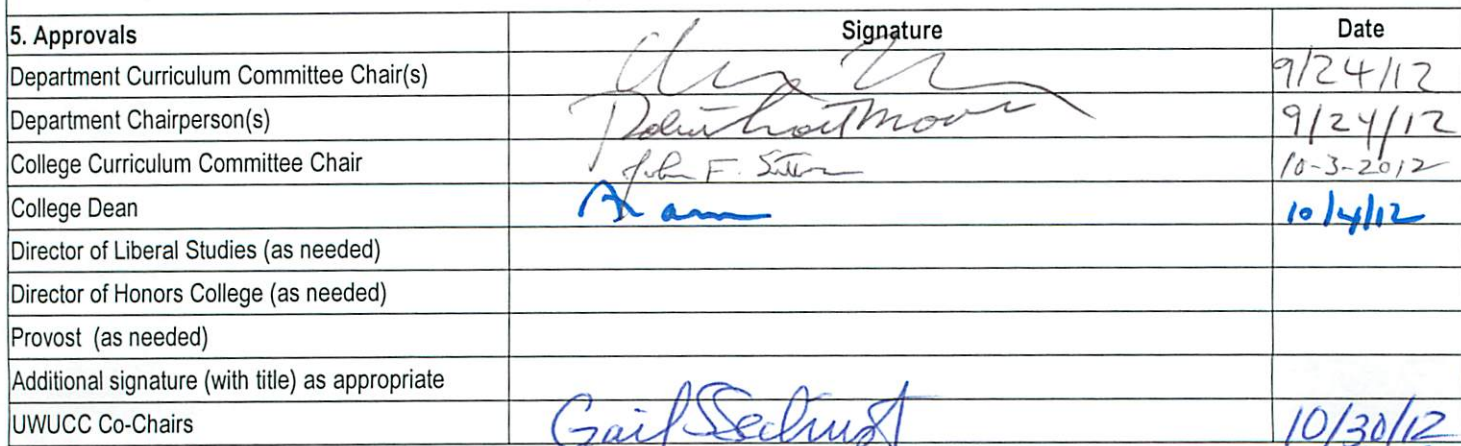 5. Approvals Signature Date
Department Curriculum Committee Chair(s) 9/24/12
Department Chairperson(s) 9/24/12
College Curriculum Committee Chair John F. 10-3-2012
College Dean 10/4/12
Director of Liberal Studies (as needed)
Director of Honors College (as needed)
Provost (as needed)
Additional signature (with title) as appropriate
UWUCC Co-Chairs Gail Sechrist 10/30/12